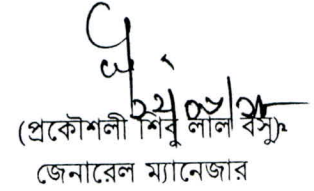 (প্রকৌশলী শিবু লাল বসু)
জেনারেল ম্যানেজার